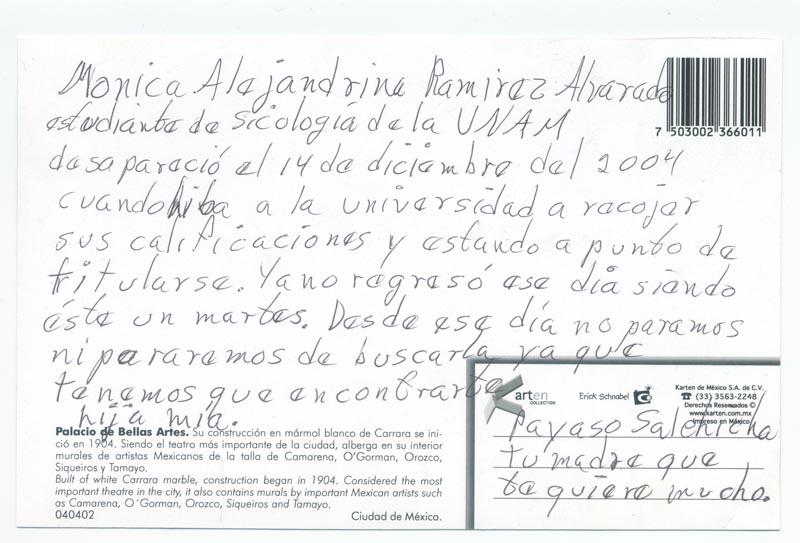 Monica Alejandrina Ramirez Alvarado
estudiante de Sicologiá de la UNAM
desapareció el 14 de diciembre del 2004
cuando hiba a la universidad a recojer
sus calificaciones y estando a punto de
titularse. Ya no regresó ese día siendo
éste un martes. Desde ese día no paramos
ni pararemos de buscarla ya que
tenemos que encontrarte
hija mía.
7 503002 366011
Palacio de Bellas Artes. Su construcción en mármol blanco de Carrara se ini-
ció en 1904. Siendo el teatro más importante de la ciudad, alberga en su interior
murales de artistas Mexicanos de la talla de Camarena, O'Gorman, Orozco,
Siqueiros y Tamayo.
Built of white Carrara marble, construction began in 1904. Considered the most
important theatre in the city, it also contains murals by important Mexican artists such
as Camarena, O'Gorman, Orozco, Siqueiros and Tamayo.
040402
Ciudad de México.
Karten
COLLECTION
Erick Schnabel
Karten de México S.A. de C.V.
☎ (33) 3563-2248
Derechos Reservados ©
www.karten.com.mx
Impreso en México
Payaso Salchicha
tu madre que
te quiere mucho.